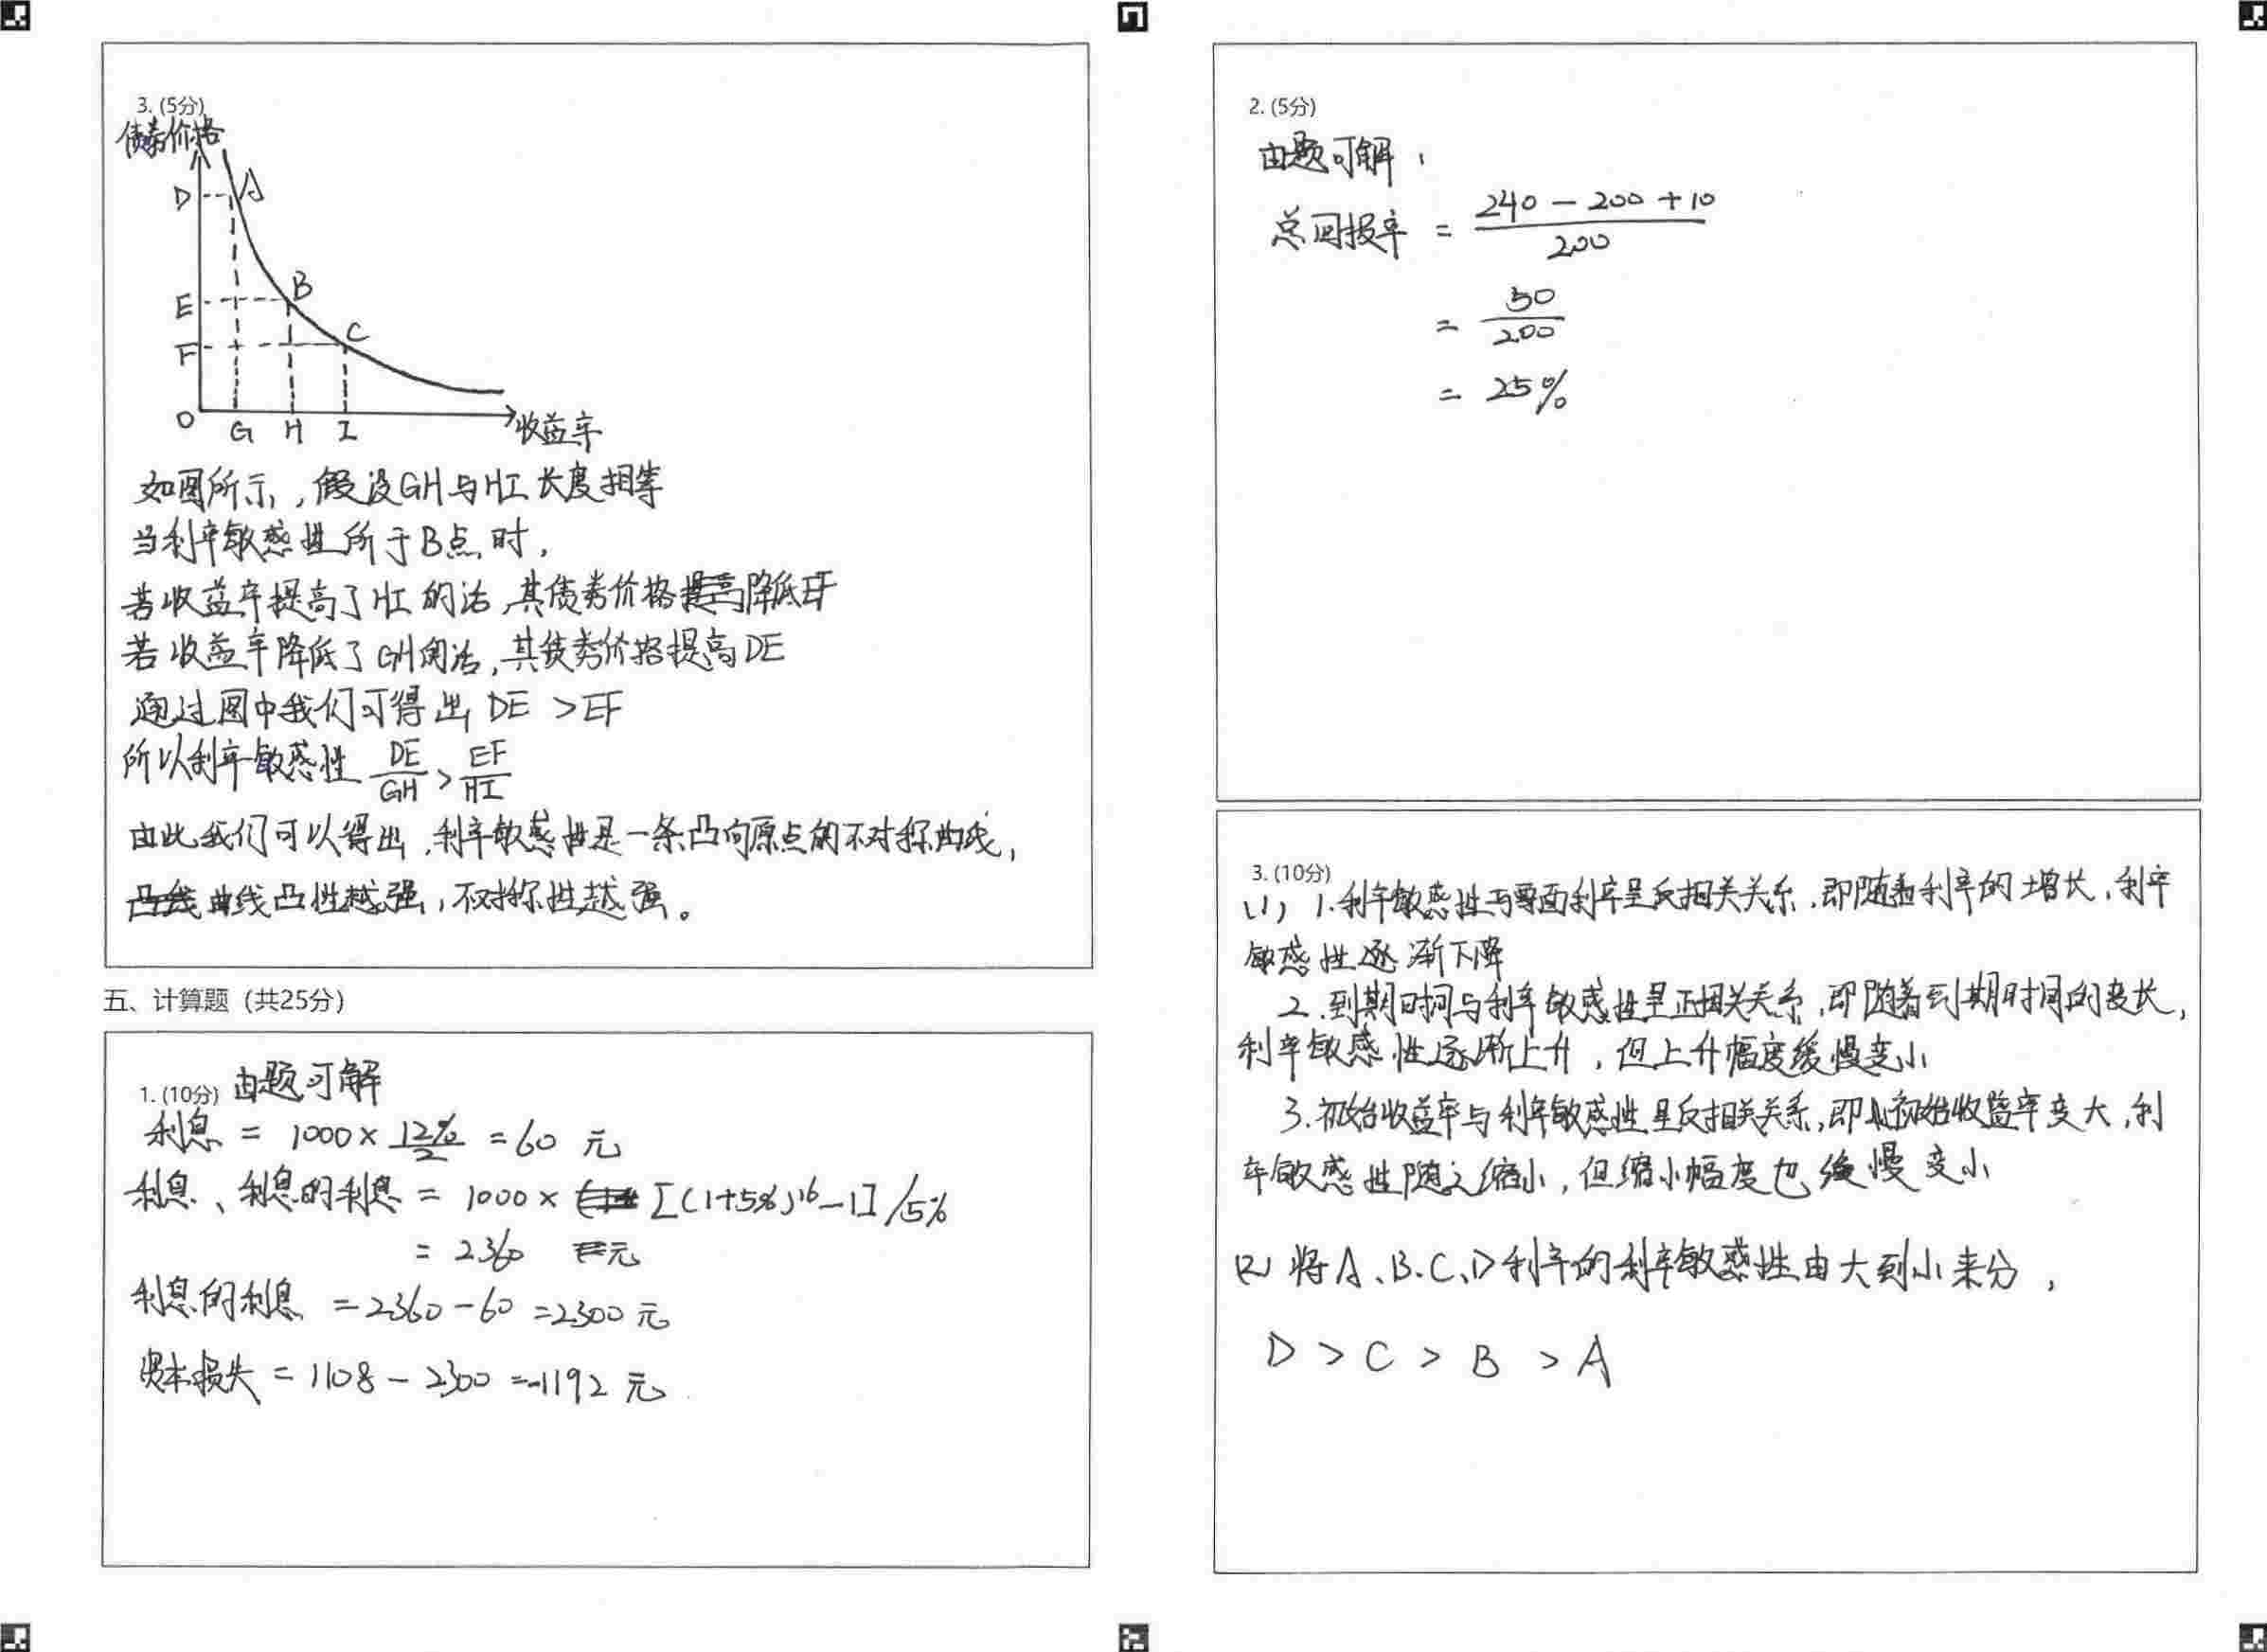 3. (5分)
债券价格
D
A
E
B
F
C
O
G H I
收益率
如图所示,假设GH与HI长度相等
当利率敏感性所于B点时,
若收益率提高了HI的话,其债券价格提高降低EF
若收益率降低了GH的话,其债券价格提高DE
通过图中我们可得出 DE > EF
所以利率敏感性 DE/GH > EF/HI
由此我们可以得出,利率敏感性是一条凸向原点的不对称曲线,
曲线凸性越强,不对称性越强。
五、计算题(共25分)
1. (10分) 由题可解
利息 = 1000 × 12%/2 = 60 元
利息、利息的利息 = 1000 × [(1+5%)^16 -1] /5%
= 2360 元
利息的利息 = 2360 - 60 = 2300 元
资本损失 = 1108 - 2300 = -1192 元
2. (5分)
由题可解,
总回报率 = (240 - 200 + 10)/200
= 50/200
= 25%
3. (10分)
(1) 1.利率敏感性与票面利率呈反相关关系,即随着利率的增长,利率
敏感性逐渐下降
2.到期时间与利率敏感性呈正相关关系,即随着到期时间的变长,
利率敏感性逐渐上升,但上升幅度缓慢变小
3.初始收益率与利率敏感性呈反相关关系,即初始收益率变大,利
率敏感性随之缩小,但缩小幅度也缓慢变小
(2) 将A、B、C、D利率的利率敏感性由大到小来分,
D > C > B > A